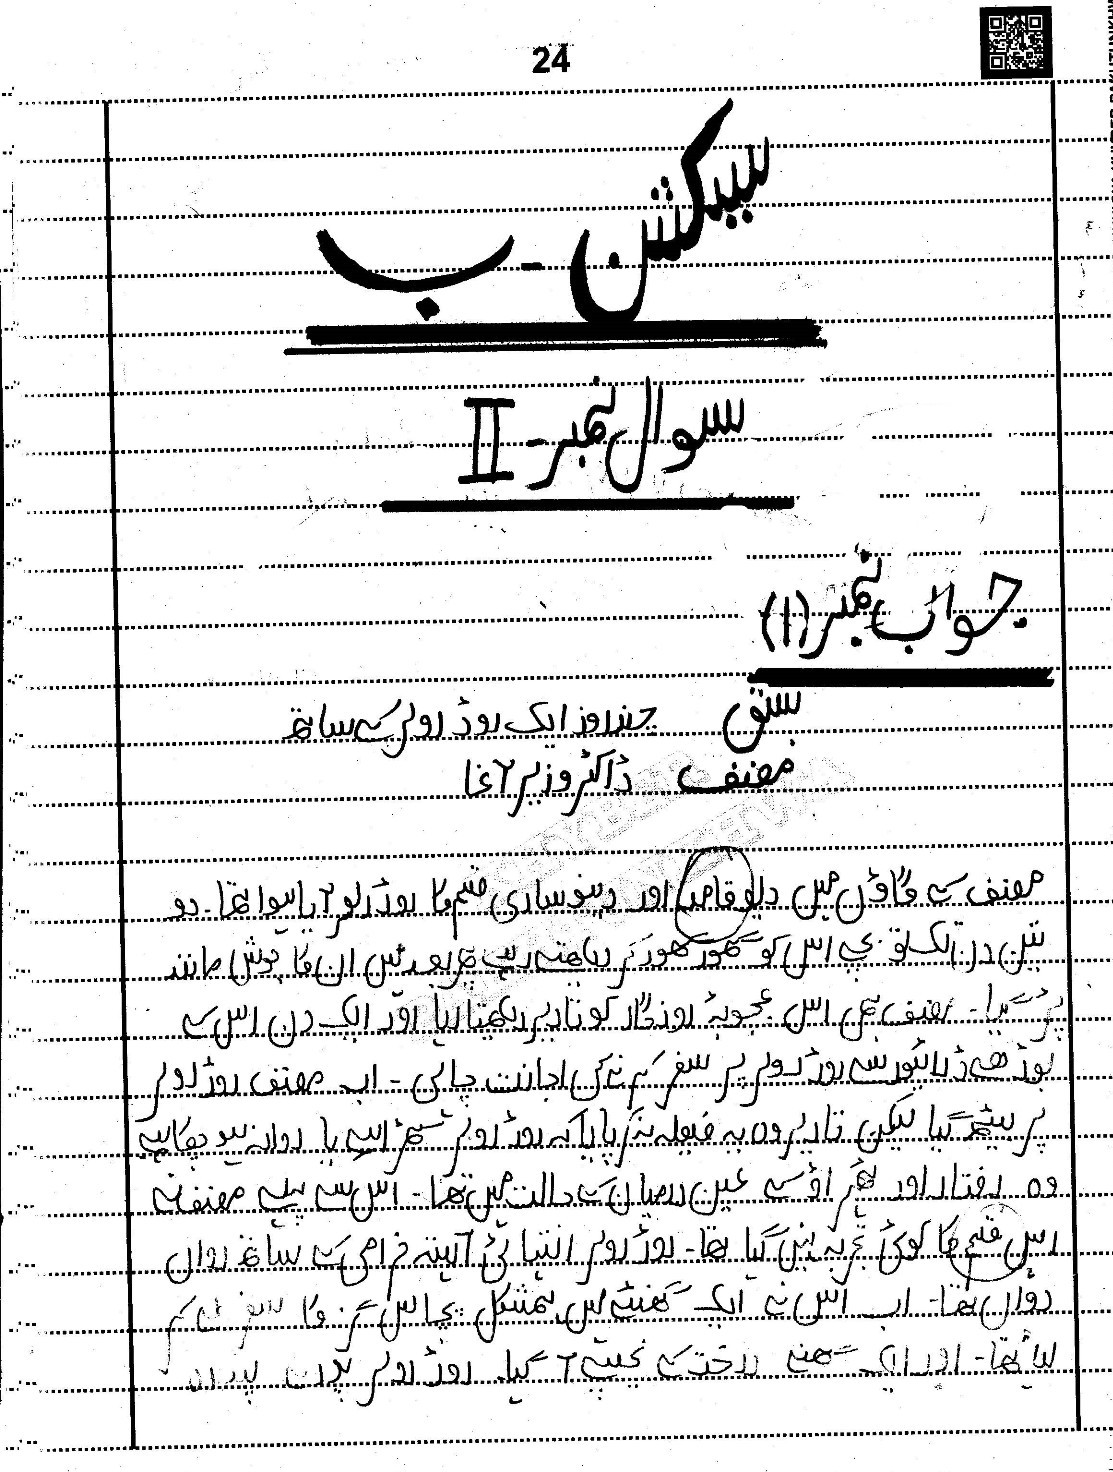 24
سیکشن - ب
سوال نمبر - II
جواب نمبر (1)
سبق چند روز ایک روڈ رولر کے ساتھ
مصنف ڈاکٹر وزیر آغا
مصنف کے گاؤں میں دیو قامت اور دینو ساری قسم کا روڈ رولر آیا ہوا تھا۔ دو
تین دن تک تو بچے اس کو گھور گھور کر دیکھتے رہے پھر بعد میں ان کا جوش ماند
پڑ گیا۔ مصنف بھی اس عجوبۂ روزگار کو تا دیر دیکھتا رہا اور ایک دن اس کے
بوڑھے ڈرائیور سے روڈ رولر پر سفر کرنے کی اجازت چاہی۔ اب مصنف روڈ رولر
پر بیٹھ گیا لیکن تا دیر وہ یہ فیصلہ نہ کر پایا کہ روڈ رولر ٹھہرا ہے یا روانہ ہو چکا ہے
وہ رفتار اور ٹھہراؤ کے عین درمیان کے حالت میں تھا۔ اس سے پہلے مصنف نے
اس قسم کا کوئی تجربہ نہیں کیا تھا۔ روڈ رولر انتہائی آہستہ خرامی کے ساتھ رواں
دواں تھا۔ اب اس نے ایک گھنٹے میں بمشکل پچاس گز کا سفر طے کر
لیا تھا۔ اور ایک گھنے درخت کے نیچے آ گیا۔ روڈ رولر